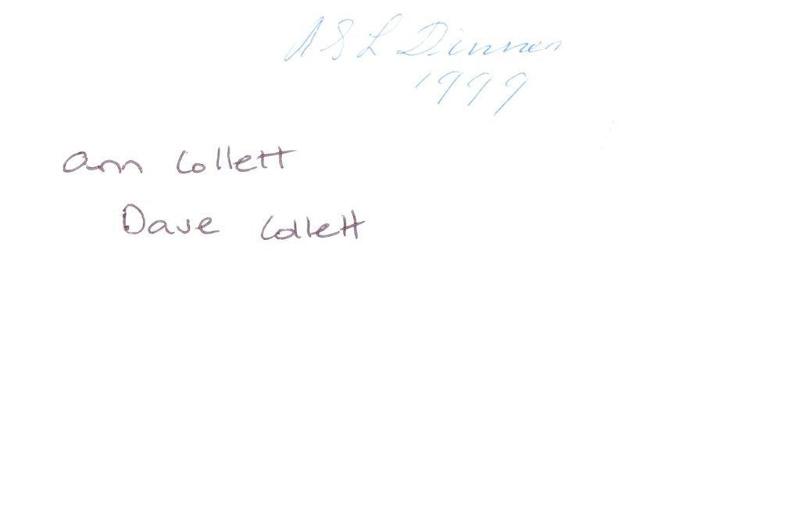 ASL Dinner
1999
Ann Collett
Dave Collett